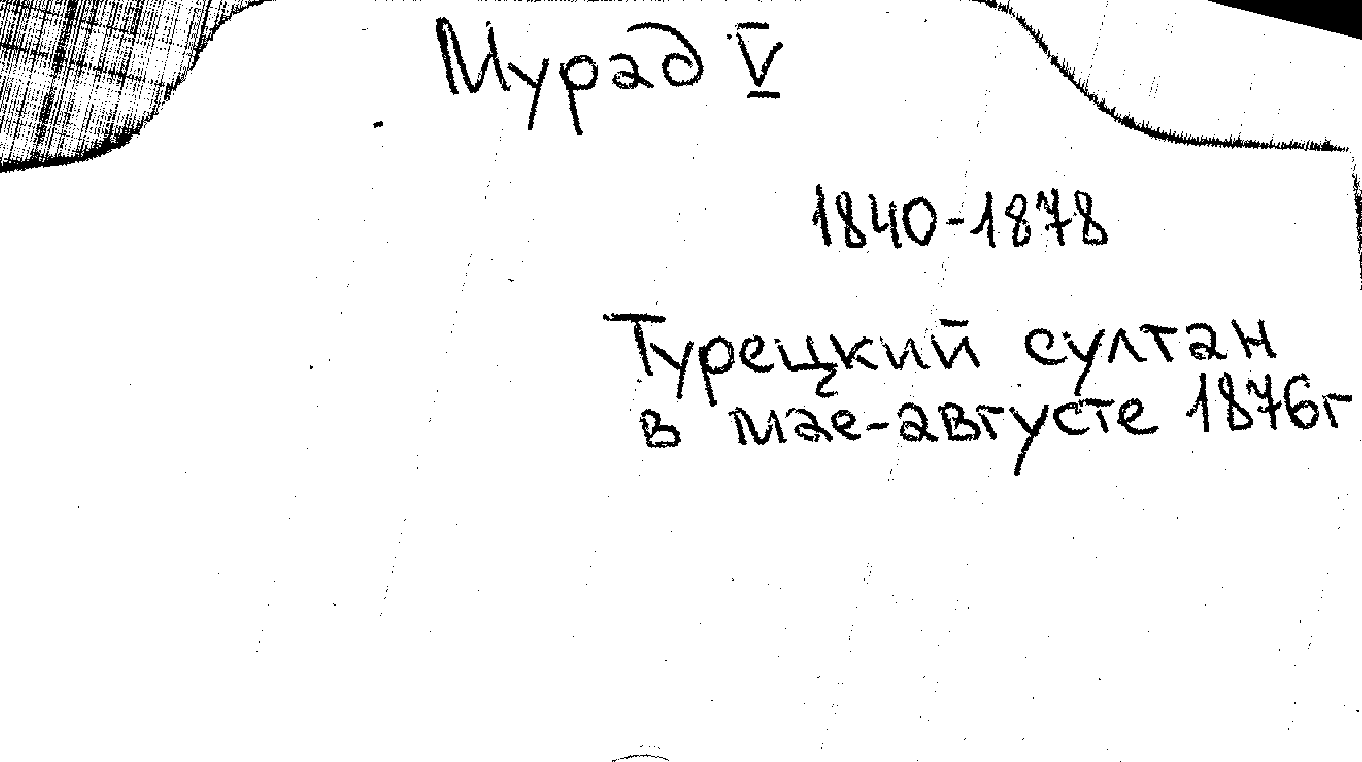 Мурад V
1840-1878
Турецкий султан
в мае-августе 1876г